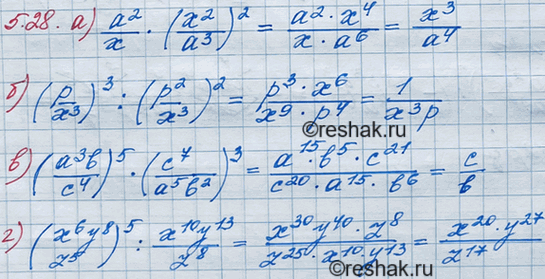 5.28. а) a²/x · (x²/a³)² = a²·x⁴/x·a⁶ = x³/a⁴
б) (p/x³)³ : (p²/x³)² = p³·x⁶/x⁹·p⁴ = 1/x³p
©reshak.ru
в) (a³b/c⁴)⁵ · (c⁷/a⁵b²)³ = a¹⁵·b⁵·c²¹/c²⁰·a¹⁵·b⁶ = c/b
г) (x⁶y⁸/z⁵)⁵ : x¹⁰y¹³/z⁸ = x³⁰·y⁴⁰·z⁸/z²⁵·x¹⁰·y¹³ = x²⁰·y²⁷/z¹⁷
©reshak.ru